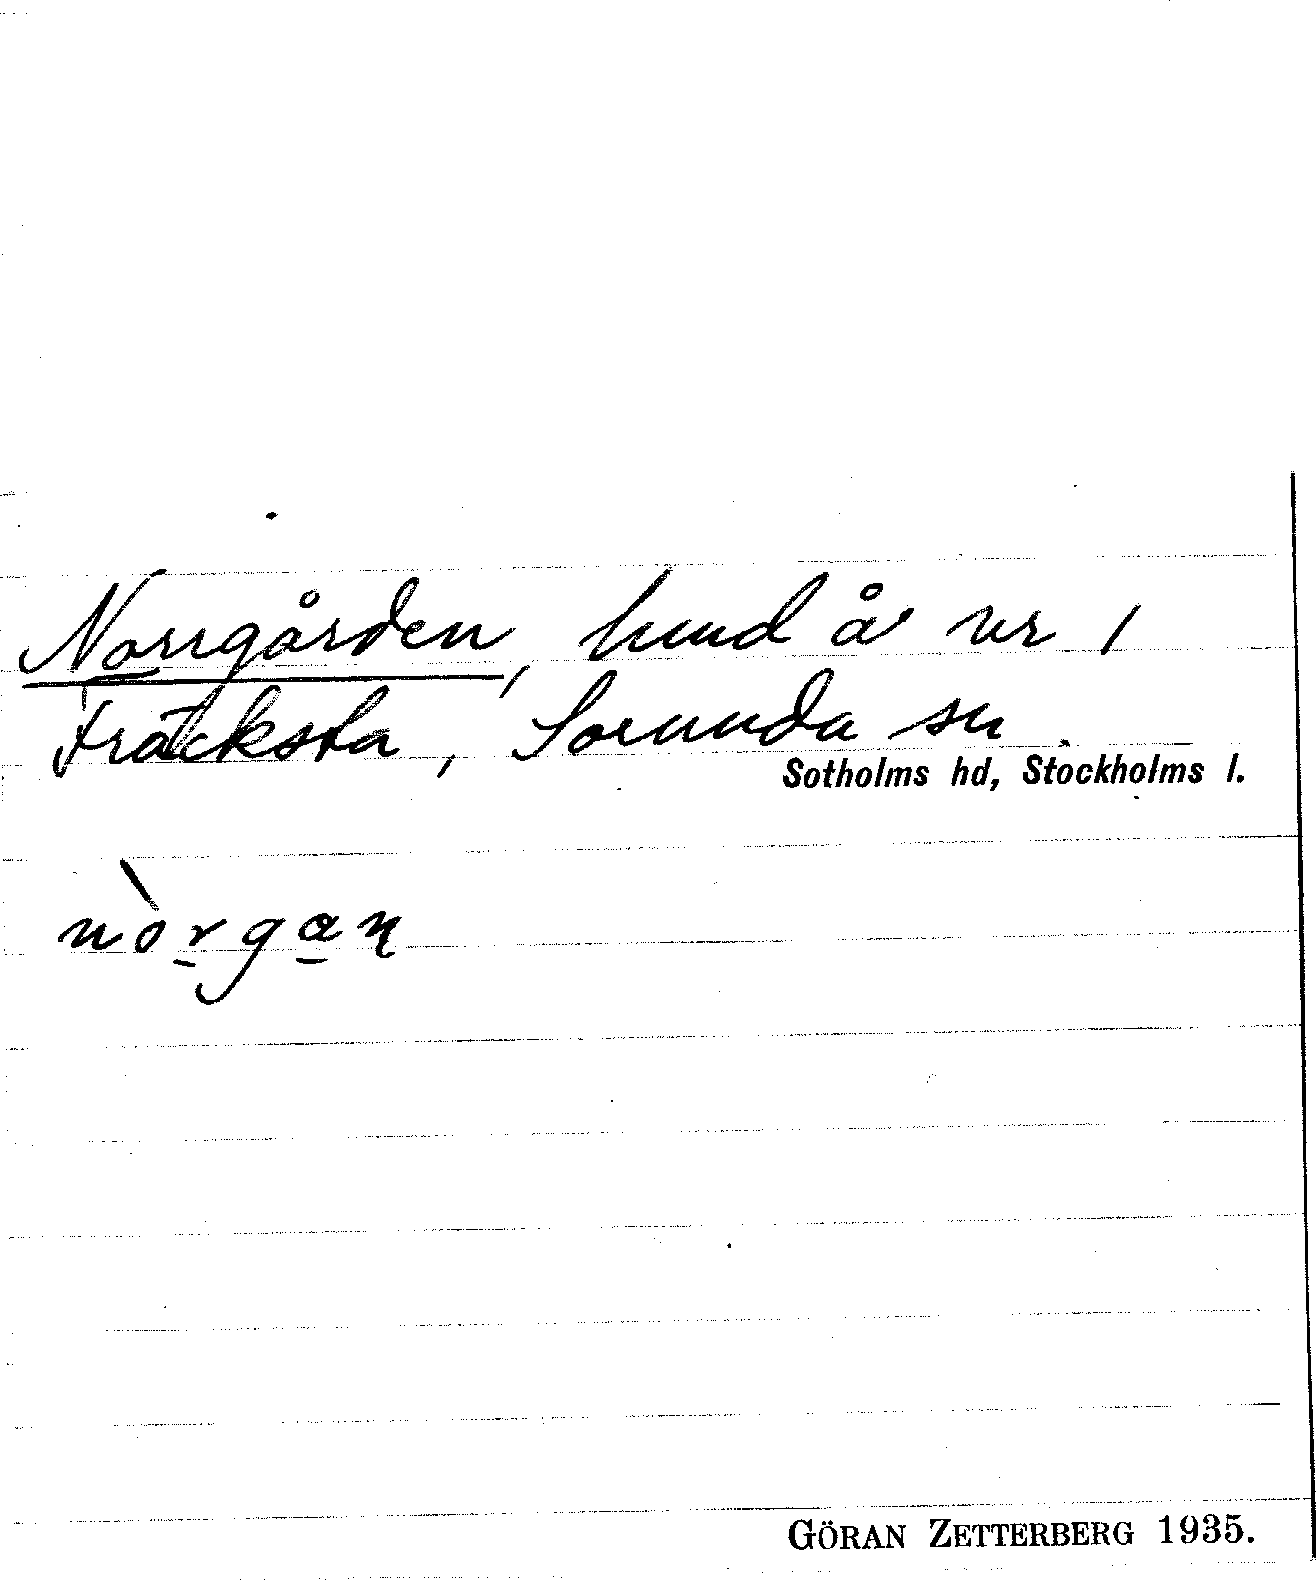 Norrgården, hmd å nr 1
Fräcksta, Sorunda sn
Sotholms hd, Stockholms l.
nòrgan
GÖRAN ZETTERBERG 1935.